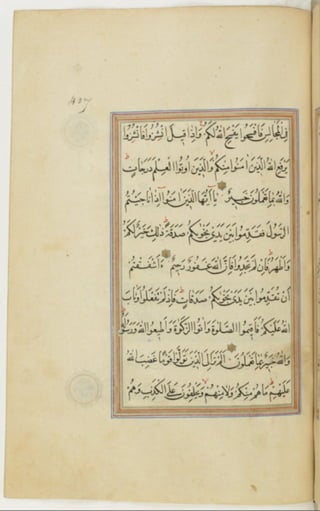 فِي الْمَجَالِسِ فَافْسَحُوا يَفْسَحِ اللّٰهُ لَكُمْ وَاِذَا قِيلَ انْشُزُوا فَانْشُزُوا
يَرْفَعِ اللّٰهُ الَّذِينَ اٰمَنُوا مِنْكُمْ وَالَّذِينَ اُوتُوا الْعِلْمَ دَرَجَاتٍ
وَاللّٰهُ بِمَا تَعْمَلُونَ خَبِيرٌ يَا اَيُّهَا الَّذِينَ اٰمَنُوا اِذَا نَاجَيْتُمُ
الرَّسُولَ فَقَدِّمُوا بَيْنَ يَدَيْ نَجْوٰيكُمْ صَدَقَةً ذٰلِكَ خَيْرٌ لَكُمْ
وَاَطْهَرُ فَاِنْ لَمْ تَجِدُوا فَاِنَّ اللّٰهَ غَفُورٌ رَحِيمٌ ءَاَشْفَقْتُمْ
اَنْ تُقَدِّمُوا بَيْنَ يَدَيْ نَجْوٰيكُمْ صَدَقَاتٍ فَاِذْ لَمْ تَفْعَلُوا وَتَابَ
اللّٰهُ عَلَيْكُمْ فَاَقِيمُوا الصَّلٰوةَ وَاٰتُوا الزَّكٰوةَ وَاَطِيعُوا اللّٰهَ وَرَسُولَهُ
وَاللّٰهُ خَبِيرٌ بِمَا تَعْمَلُونَ اَلَمْ تَرَ اِلَى الَّذِينَ تَوَلَّوْا قَوْمًا غَضِبَ اللّٰهُ
عَلَيْهِمْ مَا هُمْ مِنْكُمْ وَلَا مِنْهُمْ وَيَحْلِفُونَ عَلَى الْكَذِبِ وَهُمْ